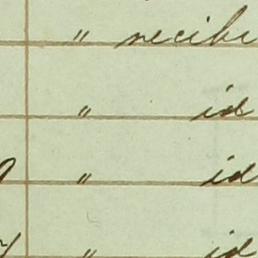 " recibi
" id
" id
" id